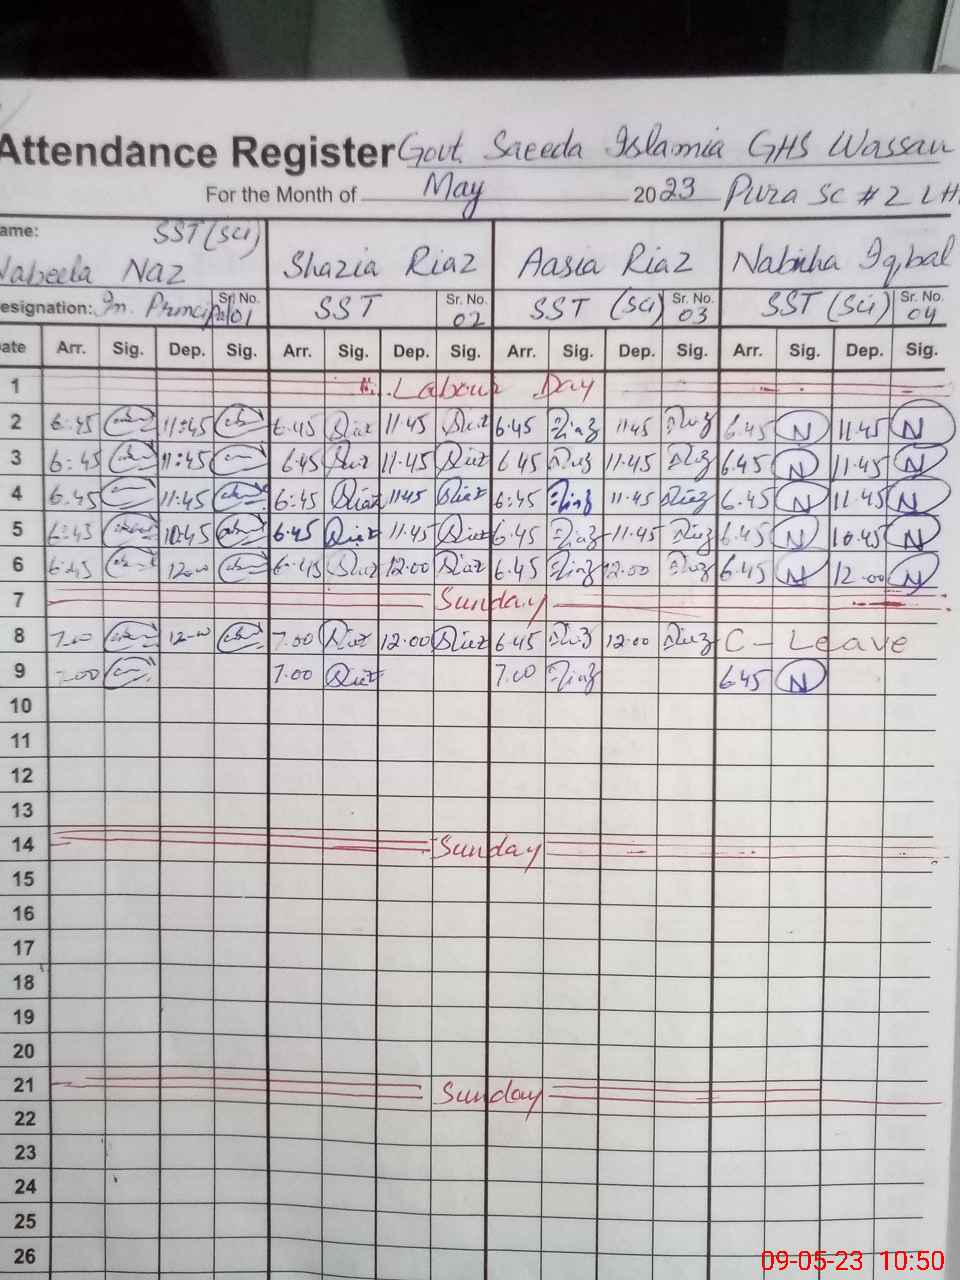 Attendance Register Govt. Saeeda Islamia GHS Wassan
For the Month of May 2023 Pura Sc # 2 LH
ame: SST (Sci)
Nabeela Naz Shazia Riaz Aasia Riaz Nabiha Iqbal
esignation: In. Principal Sr. No. 01 SST Sr. No. 02 SST (Sci) Sr. No. 03 SST (Sci) Sr. No. 04
ate Arr. Sig. Dep. Sig. Arr. Sig. Dep. Sig. Arr. Sig. Dep. Sig. Arr. Sig. Dep. Sig.
1 Labour Day
2 6:45 11:45 6.45 Riaz 11.45 Riaz 6.45 Riaz 11.45 Riaz 6.45 N 11.45 N
3 6:45 11:45 6.45 Riaz 11.45 Riaz 6.45 Riaz 11.45 Riaz 6.45 N 11.45 N
4 6.45 11:45 6:45 Riaz 11.45 Riaz 6:45 Riaz 11.45 Riaz 6.45 N 11.45 N
5 6:45 10:45 6.45 Riaz 11.45 Riaz 6.45 Riaz 11.45 Riaz 6.45 N 10.45 N
6 6:45 12.00 6.45 Riaz 12.00 Riaz 6.45 Riaz 12.00 Riaz 6.45 N 12.00 N
7 Sunday
8 7.00 12.00 7.00 Riaz 12.00 Riaz 6.45 Riaz 12.00 Riaz C - Leave
9 7.00 7.00 Riaz 7.00 Riaz 6.45 N
10
11
12
13
14 Sunday
15
16
17
18
19
20
21 Sunday
22
23
24
25
26
09-05-23 10:50